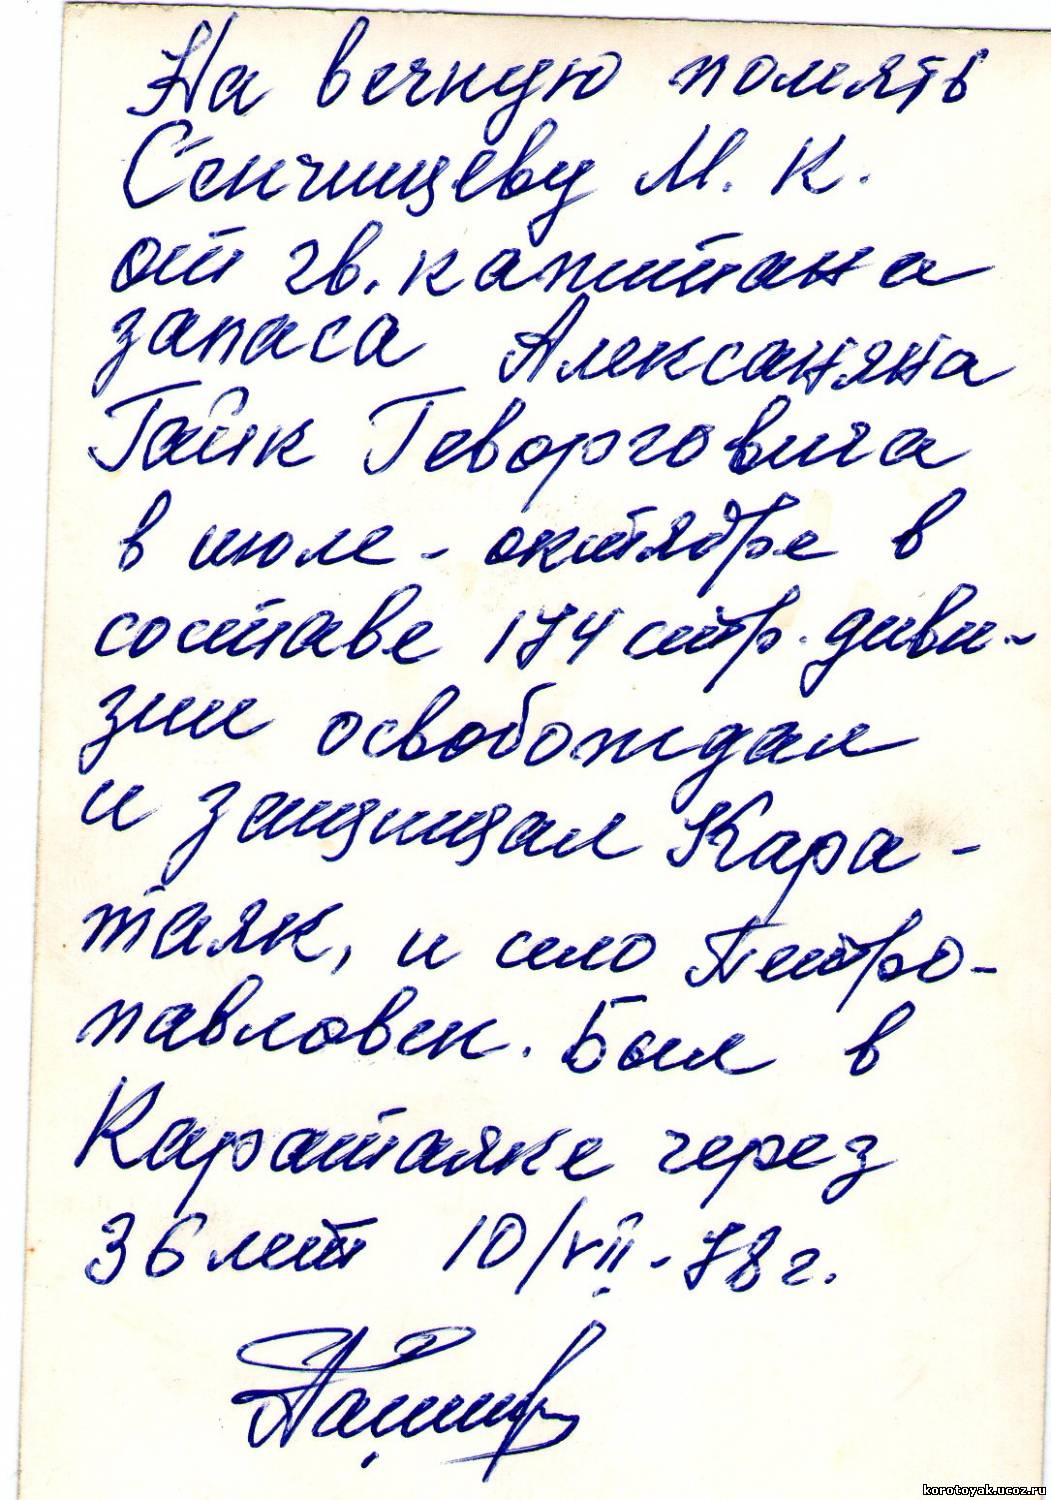 На вечную помять
Сенчищеву М. К.
от гв. капитана
запаса Алексаняна
Гайк Геворговича
в июле - октядре в
составе 174 стр. диви-
зии освобождал
и защищал Кара-
таяк, и село Петро-
павловск. Был в
Каратаяке через
36 лет 10/VII-78 г.
korotoyak.ucoz.ru